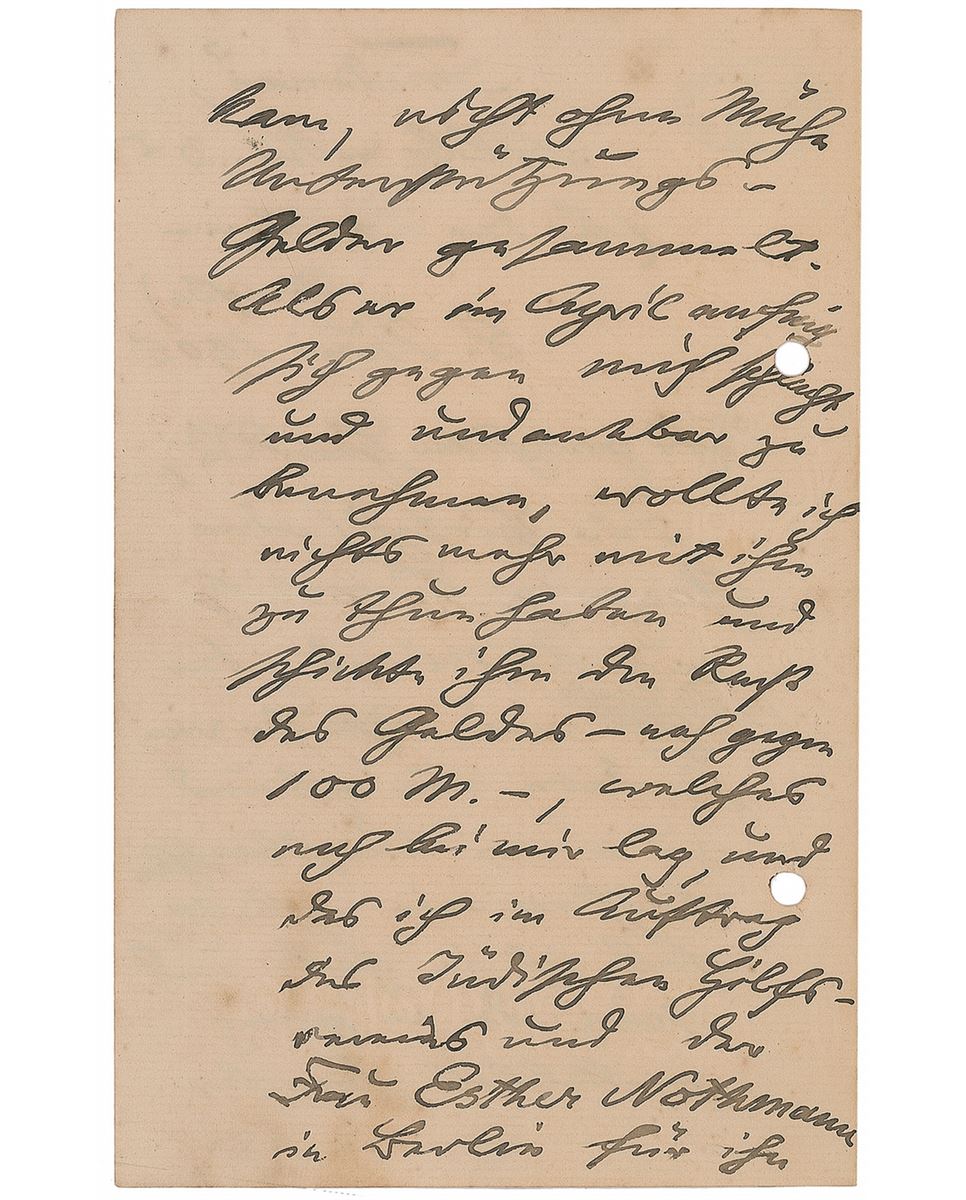 kam, nicht ohne Mühe
Unterstützungs-
Gelder gesammelt.
Als er im April anfing
sich gegen mich schlecht
und undankbar zu
benehmen, wollte ich
nichts mehr mit ihm
zu thun haben und
schickte ihm den Rest
des Geldes – noch gegen
100 M. –, welches
noch bei mir lag, und
das ich im Auftrag
des Jüdischen Hilfs-
vereins und der
Frau Esther Nothmann
in Berlin für ihn